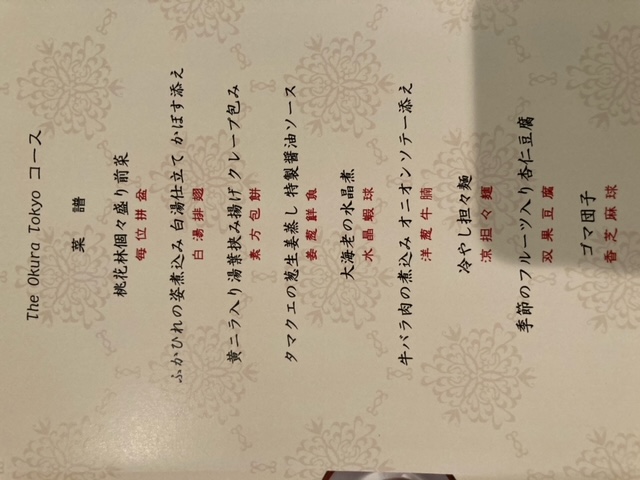 The Okura Tokyo コース
菜譜
桃花林個々盛り前菜
每位拼盆
ふかひれの姿煮込み 白湯仕立て かぼす添え
白湯排翅
黄ニラ入り湯葉挟み揚げ クレープ包み
素方包餅
タマクエの葱生姜蒸し 特製醤油ソース
姜葱鮮魚
大海老の水晶煮
水晶蝦球
牛バラ肉の煮込み オニオンソテー添え
洋葱牛腩
冷やし担々麺
涼担々麺
季節のフルーツ入り杏仁豆腐
双果豆腐
ゴマ団子
香芝麻球